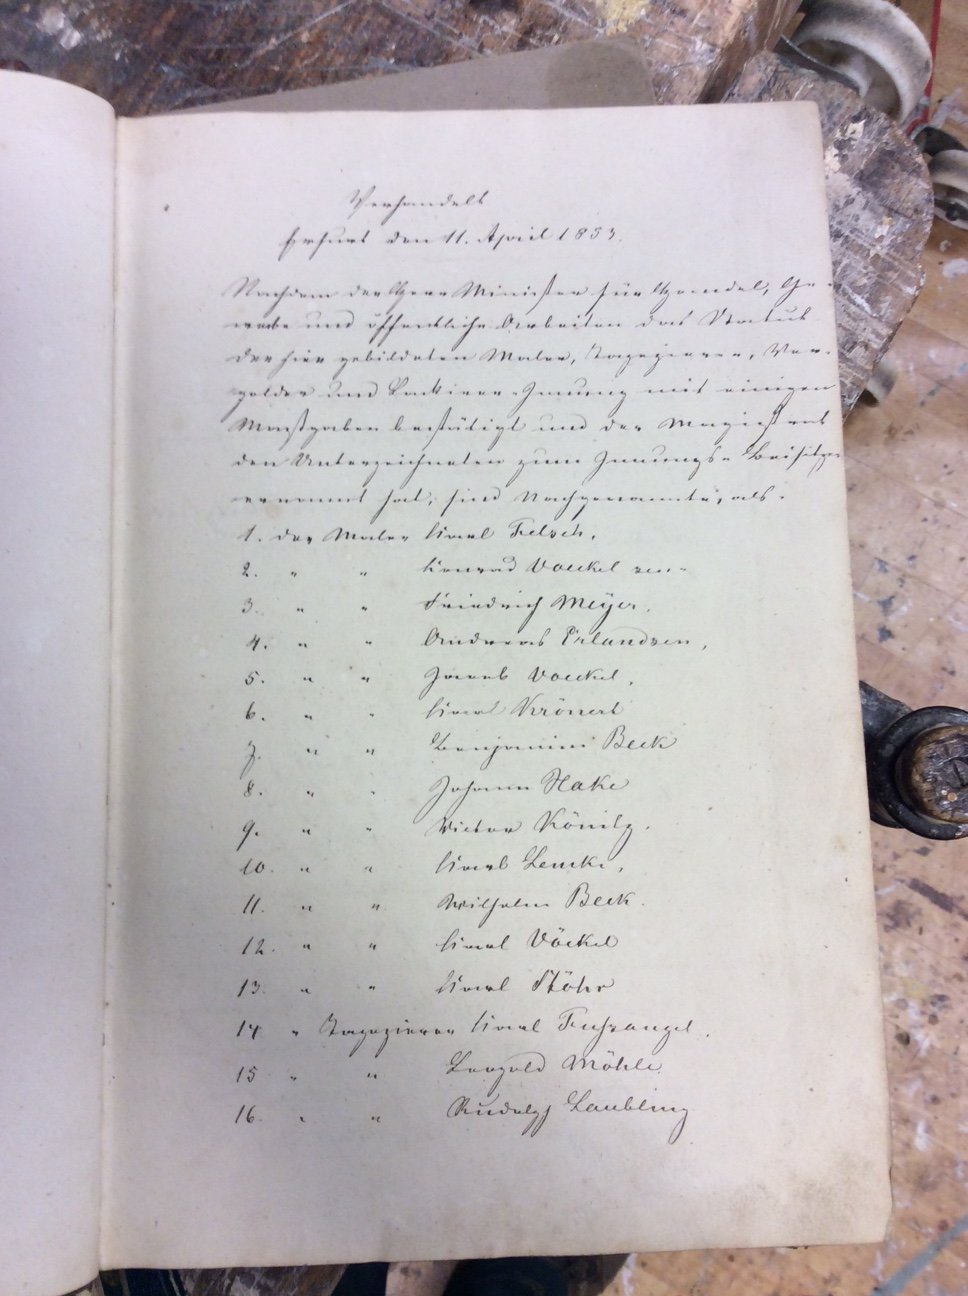 Verhandelt
Erfurt den 11. April 1853.
Nachdem der Herr Minister für Handel, Ge-
werbe und öffentliche Arbeiten das Statut
der hier gebildeten Maler, Tapezierer, Ver-
golder und Lackirer-Innung mit einigen
Maaßgaben bestätigt und der Magistrat
den Unterzeichneten zum Innungs-Beisitzer
ernannt hat, sind Nachgenannte, als:
1. der Maler Carl Felsch,
2. " " Conrad Voeckel sen.
3. " " Friedrich Meyer.
4. " " Andreas Erlandsen,
5. " " Jacob Voeckel,
6. " " Carl Krönert
7. " " Benjamin Beck
8. " " Johann Hake
9. " " Victor Könitz.
10. " " Carl Lemke,
11. " " Wilhelm Beck.
12. " " Carl Völkel
13. " " Carl Stöhr
14 " Tapezierer Carl Fußangel.
15 " " Leopold Möhle
16. " " Rudolph Laubling